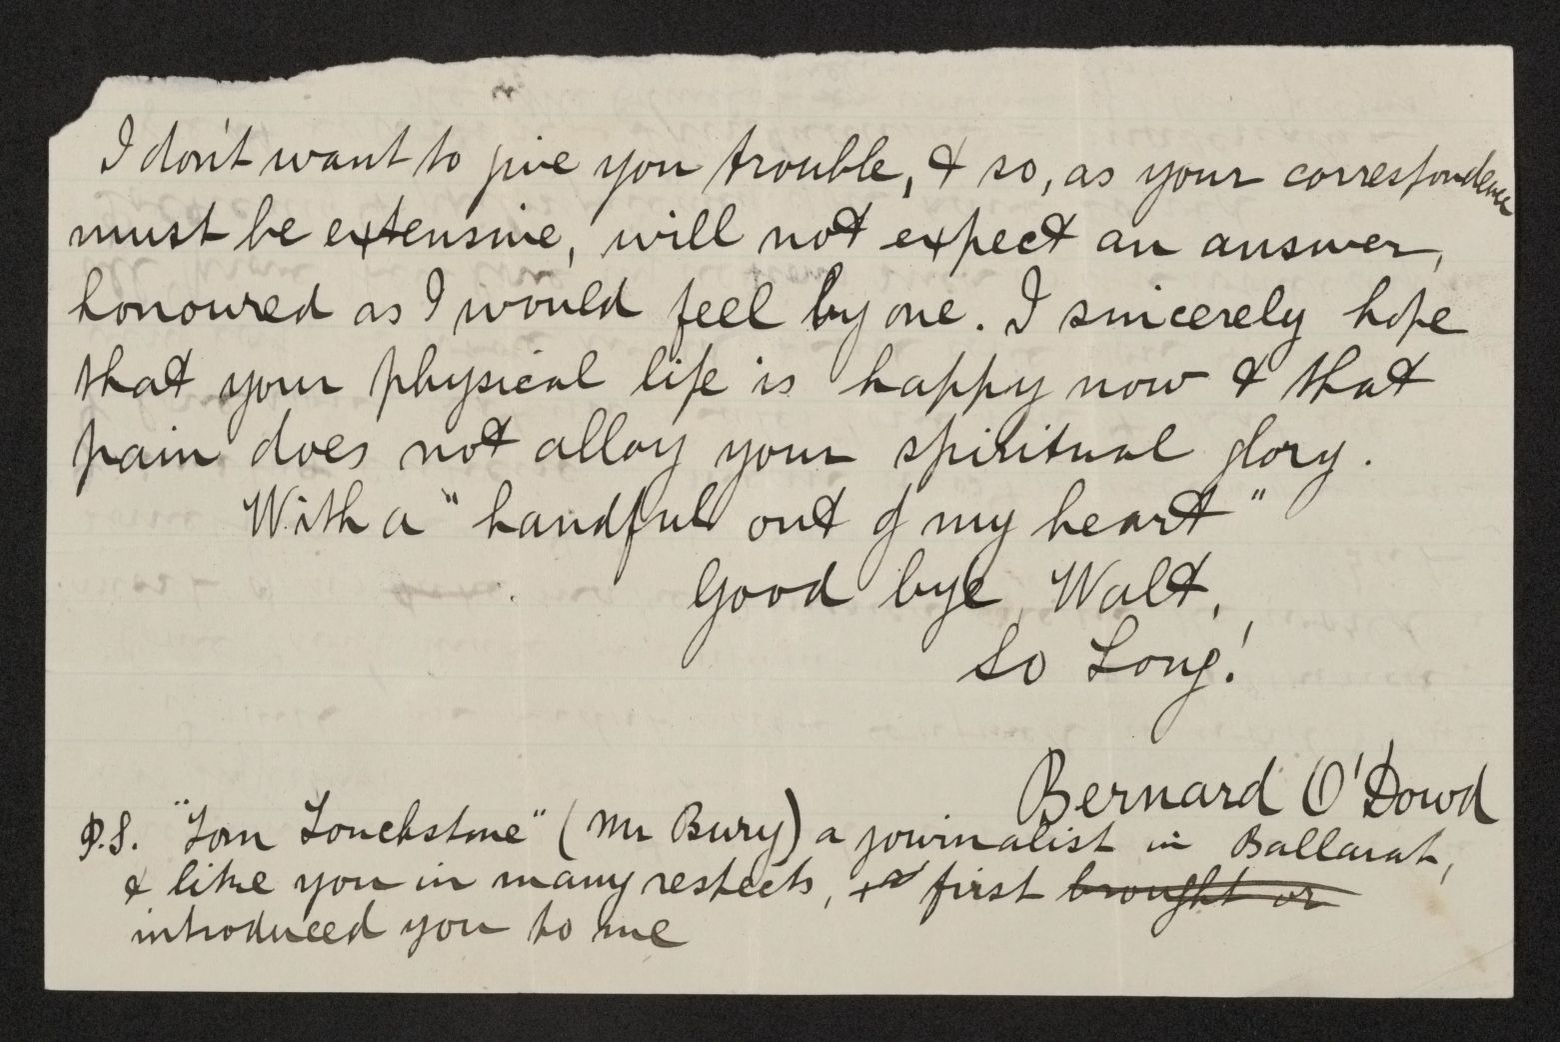 I don't want to give you trouble, & so, as your correspondence
must be extensive, will not expect an answer,
honoured as I would feel by one. I sincerely hope
that your physical life is happy now & that
pain does not alloy your spiritual glory.
With a "handful out of my heart"
Good bye Walt,
So Long!
Bernard O'Dowd
P.S. "Tom Touchstone" (Mr Bury) a journalist in Ballarat,
& like you in many respects, first brought or
introduced you to me